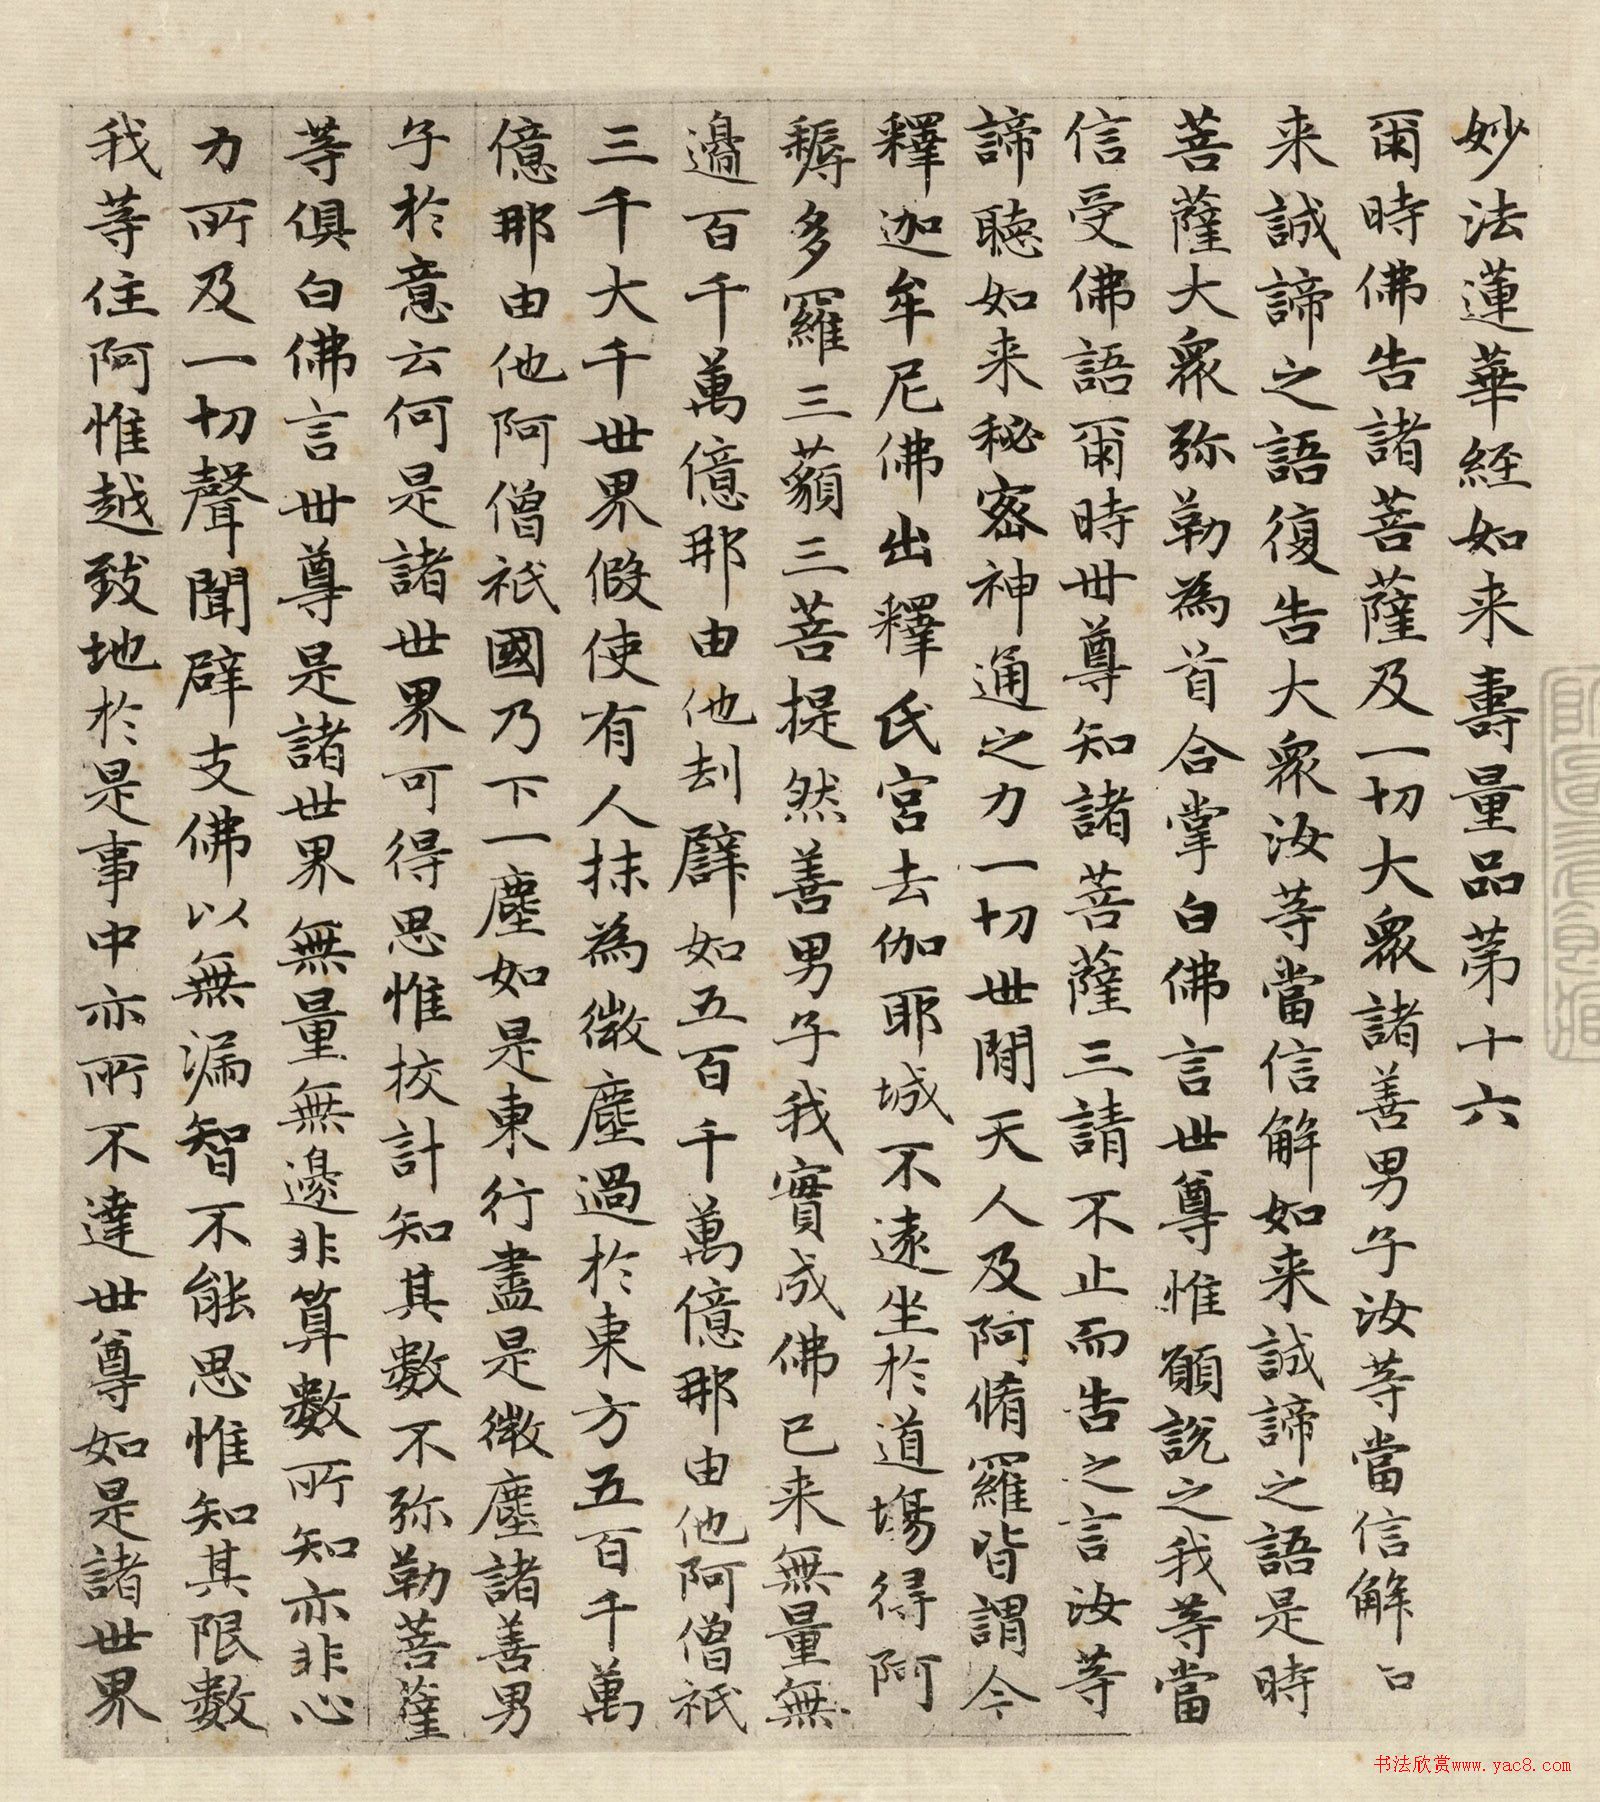 妙法蓮華經如来壽量品苐十六
爾時佛告諸菩薩及一切大眾諸善男子汝等當信解
来誠諦之語復告大眾汝等當信解如来誠諦之語是時
菩薩大眾弥勒為首合掌白佛言世尊惟願說之我等當
信受佛語爾時世尊知諸菩薩三請不止而告之言汝等
諦聴如来秘密神通之力一切世間天人及阿脩羅皆謂今
釋迦牟尼佛出釋氏宫去伽耶城不遠坐於道場得阿
耨多羅三藐三菩提然善男子我實成佛已来無量無
邊百千萬億那由他劫譬如五百千萬億那由他阿僧祇
三千大千世界假使有人抹為微塵過於東方五百千萬
億那由他阿僧祇國乃下一塵如是東行盡是微塵諸善男
子於意云何是諸世界可得思惟校計知其數不弥勒菩薩
等俱白佛言世尊是諸世界無量無邊非算數所知亦非心
力所及一切聲聞辟支佛以無漏智不能思惟知其限數
我等住阿惟越致地於是事中亦所不達世尊如是諸世界
书法欣赏www.yac8.com